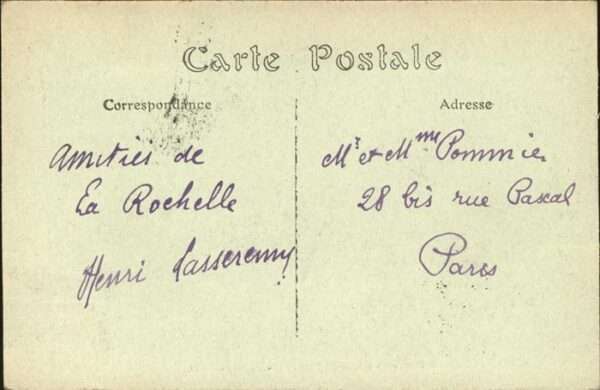 Carte Postale
Correspondance
Adresse
Amitiés de
La Rochelle
Henri
Mr et Mme Pommier
28 bis rue Pascal
Paris